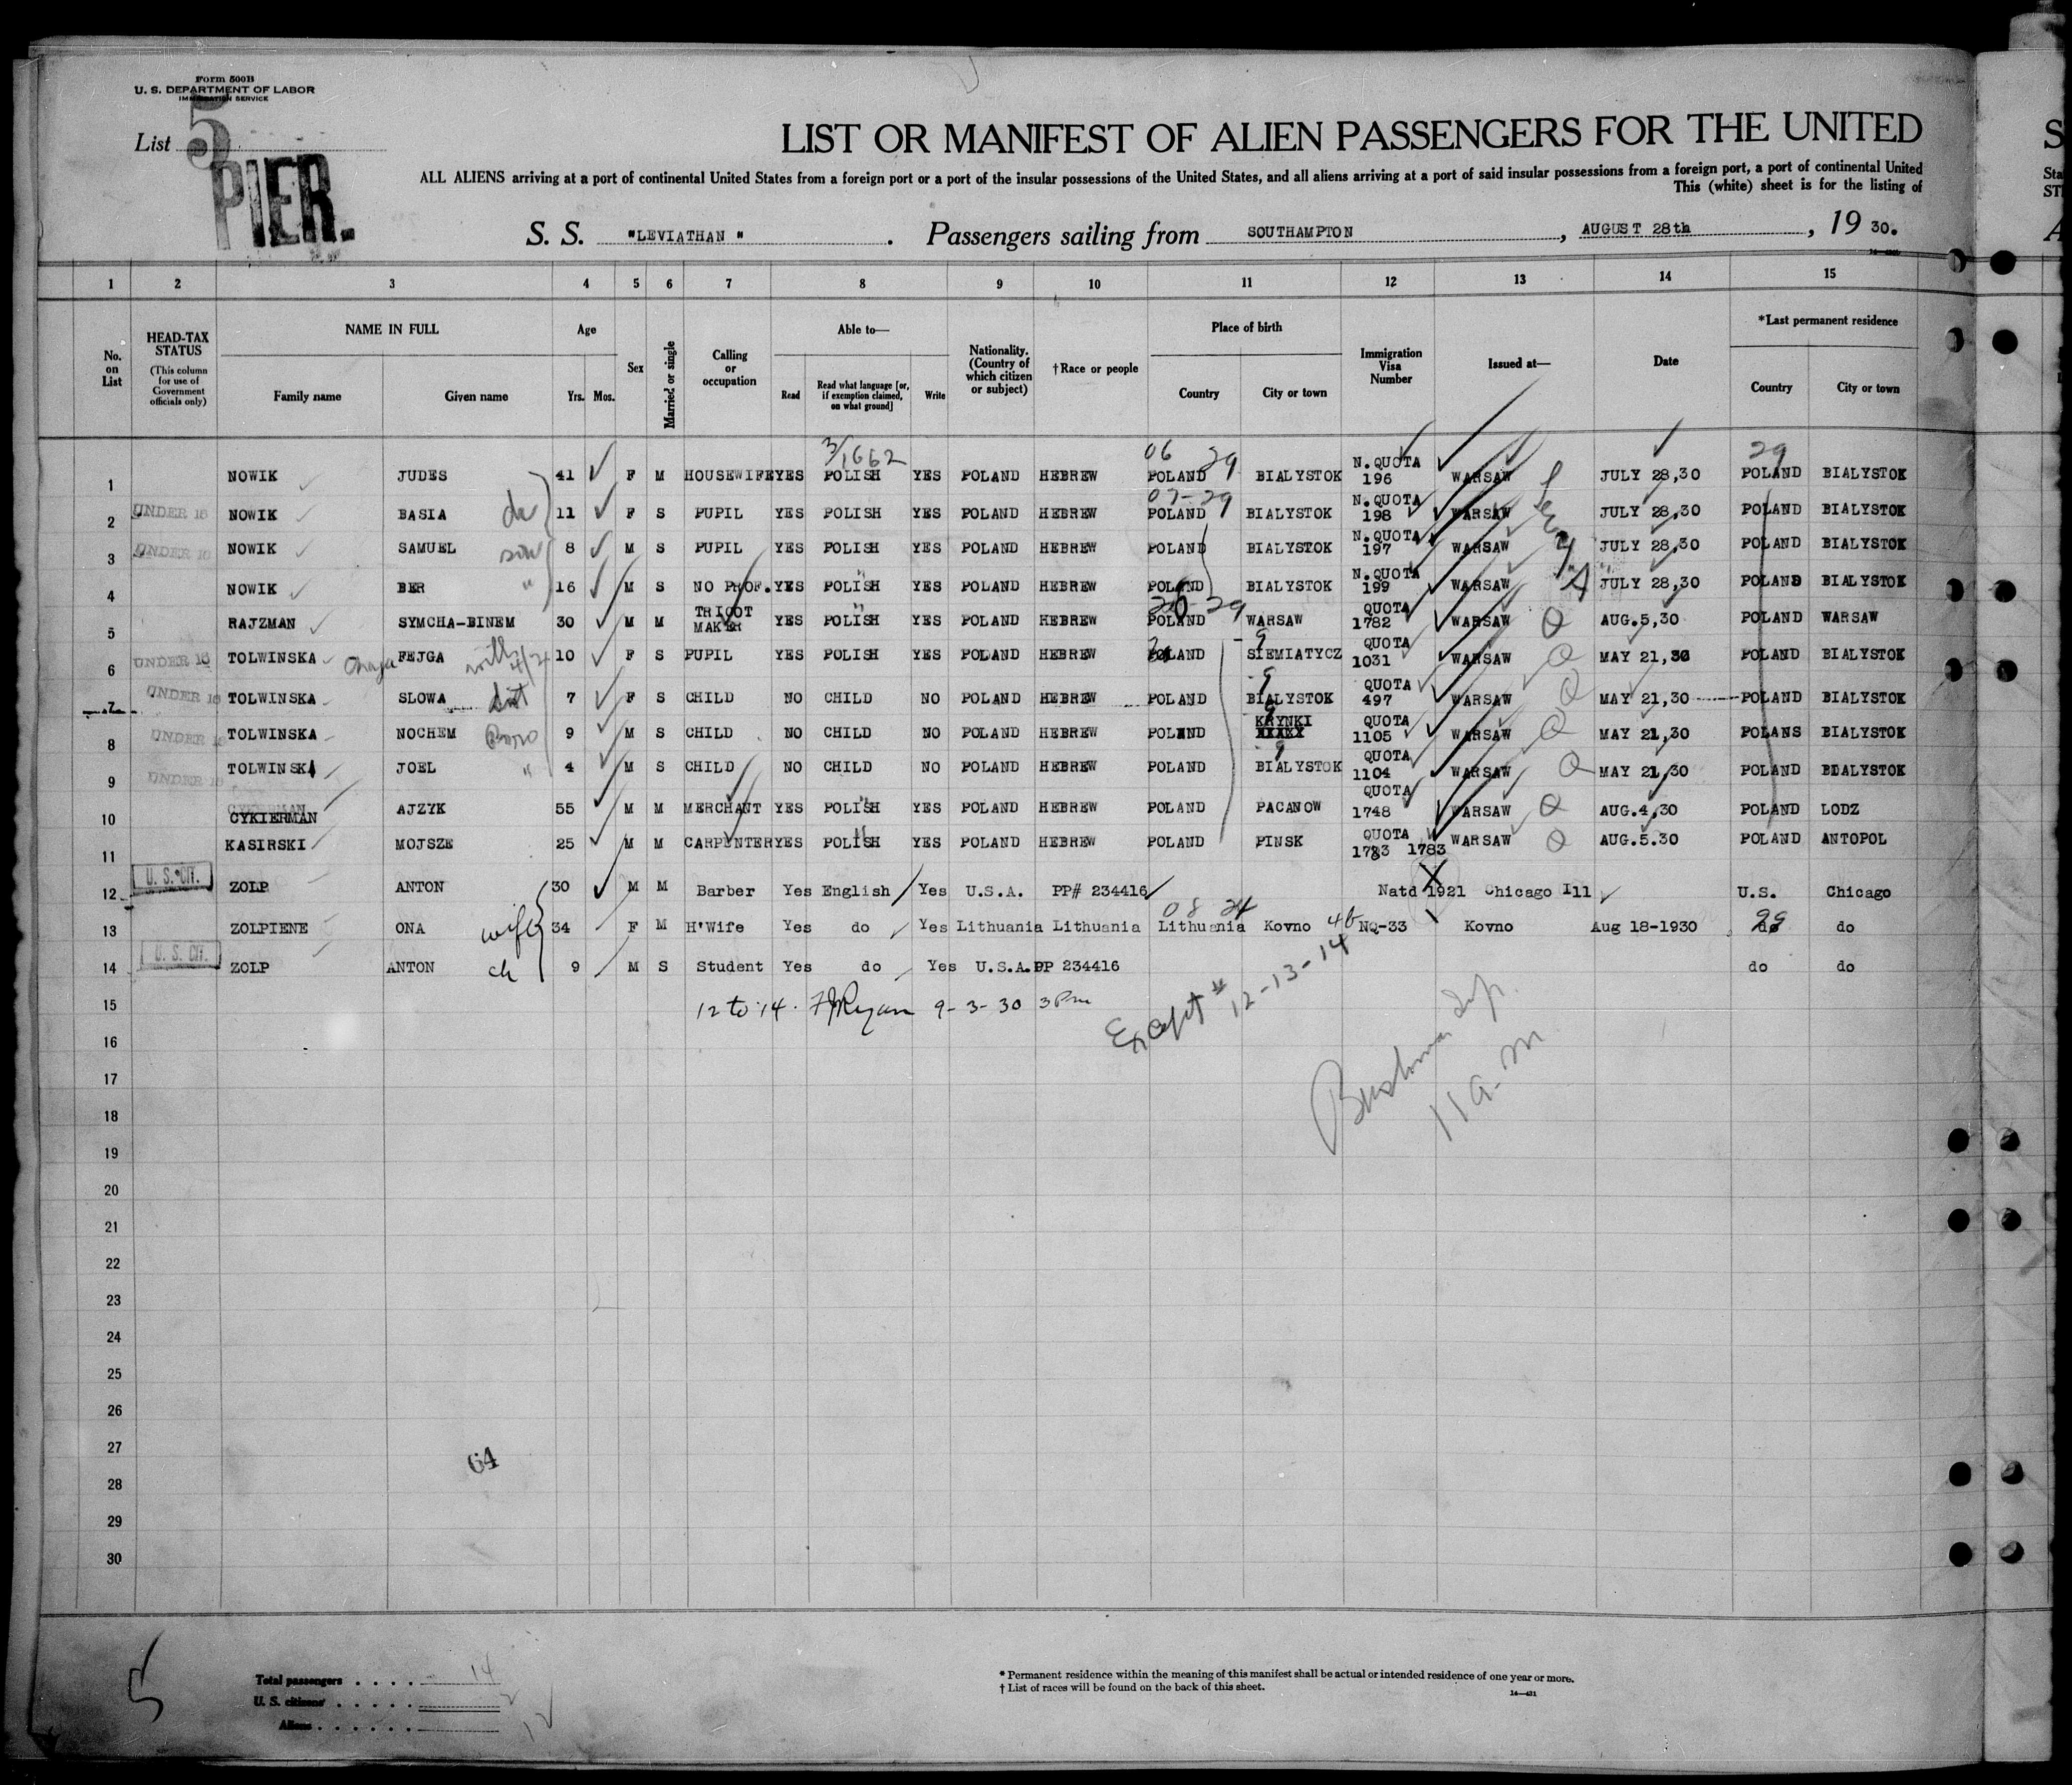 Form 500B
U. S. DEPARTMENT OF LABOR
IMMIGRATION SERVICE
List 5
PIER.
LIST OR MANIFEST OF ALIEN PASSENGERS FOR THE UNITED
ALL ALIENS arriving at a port of continental United States from a foreign port or a port of the insular possessions of the United States, and all aliens arriving at a port of said insular possessions from a foreign port, a port of continental United
This (white) sheet is for the listing of
S. S. "LEVIATHAN" . Passengers sailing from SOUTHAMPTON , AUGUST 28th , 19 30.
1 2 3 4 5 6 7 8 9 10 11 12 13 14 15
No. on List
HEAD-TAX STATUS (This column for use of Government officials only)
NAME IN FULL Family name Given name
Age Yrs. Mos.
Sex
Married or single
Calling or occupation
Able to— Read Read what language [or, if exemption claimed, on what ground] Write
Nationality. (Country of which citizen or subject)
†Race or people
Place of birth Country City or town
Immigration Visa Number
Issued at—
Date
*Last permanent residence Country City or town
3/1662 06 29 29
1 NOWIK JUDES 41 F M HOUSEWIFE YES POLISH YES POLAND HEBREW POLAND BIALYSTOK N.QUOTA 196 WARSAW JULY 28,30 POLAND BIALYSTOK
07-29
2 UNDER 16 NOWIK BASIA da 11 F S PUPIL YES POLISH YES POLAND HEBREW POLAND BIALYSTOK N.QUOTA 198 WARSAW JULY 28,30 POLAND BIALYSTOK
3 UNDER 16 NOWIK SAMUEL son 8 M S PUPIL YES POLISH YES POLAND HEBREW POLAND BIALYSTOK N.QUOTA 197 WARSAW JULY 28,30 POLAND BIALYSTOK
4 NOWIK BER " 16 M S NO PROF. YES POLISH YES POLAND HEBREW POLAND BIALYSTOK N.QUOTA 199 WARSAW JULY 28,30 POLAND BIALYSTOK
26-29
5 RAJZMAN SYMCHA-BINEM 30 M M TRICOT MAKER YES POLISH YES POLAND HEBREW POLAND WARSAW QUOTA 1782 WARSAW Q AUG.5,30 POLAND WARSAW
6 UNDER 16 TOLWINSKA FEJGA with 10 F S PUPIL YES POLISH YES POLAND HEBREW POLAND SIEMIATYCZ QUOTA 1031 WARSAW Q MAY 21,30 POLAND BIALYSTOK
7 UNDER 16 TOLWINSKA SLOWA sist 7 F S CHILD NO CHILD NO POLAND HEBREW POLAND BIALYSTOK QUOTA 497 WARSAW Q MAY 21,30 POLAND BIALYSTOK
8 UNDER 16 TOLWINSKA NOCHEM Bro 9 M S CHILD NO CHILD NO POLAND HEBREW POLAND KRYNKI QUOTA 1105 WARSAW Q MAY 21,30 POLANS BIALYSTOK
9 UNDER 16 TOLWINSKA JOEL " 4 M S CHILD NO CHILD NO POLAND HEBREW POLAND BIALYSTOK QUOTA 1104 WARSAW Q MAY 21,30 POLAND BIALYSTOK
10 CYKIERMAN AJZYK 55 M M MERCHANT YES POLISH YES POLAND HEBREW POLAND PACANOW QUOTA 1748 WARSAW Q AUG.4,30 POLAND LODZ
11 KASIRSKI MOJSZE 25 M M CARPENTER YES POLISH YES POLAND HEBREW POLAND PINSK QUOTA 1783 1783 WARSAW Q AUG.5.30 POLAND ANTOPOL
12 U. S. CIT. ZOLP ANTON 30 M M Barber Yes English Yes U.S.A. PP# 234416 Natd 1921 Chicago Ill U.S. Chicago
08 24
13 ZOLPIENE ONA wife 34 F M H'Wife Yes do Yes Lithuania Lithuania Lithuania Kovno NQ-33 Kovno Aug 18-1930 do do
14 U. S. CIT. ZOLP ANTON ch 9 M S Student Yes do Yes U.S.A. PP 234416 do do
15 12 to 14. FJRyan 9-3-30 3 Pm
Except # 12-13-14
16
17
11 a.m
18
19
20
21
22
23
24
25
26
27
64
28
29
30
Total passengers . . . . 14
U. S. citizens . . . . . 2
Aliens . . . . . . 12
* Permanent residence within the meaning of this manifest shall be actual or intended residence of one year or more.
† List of races will be found on the back of this sheet.
14—431